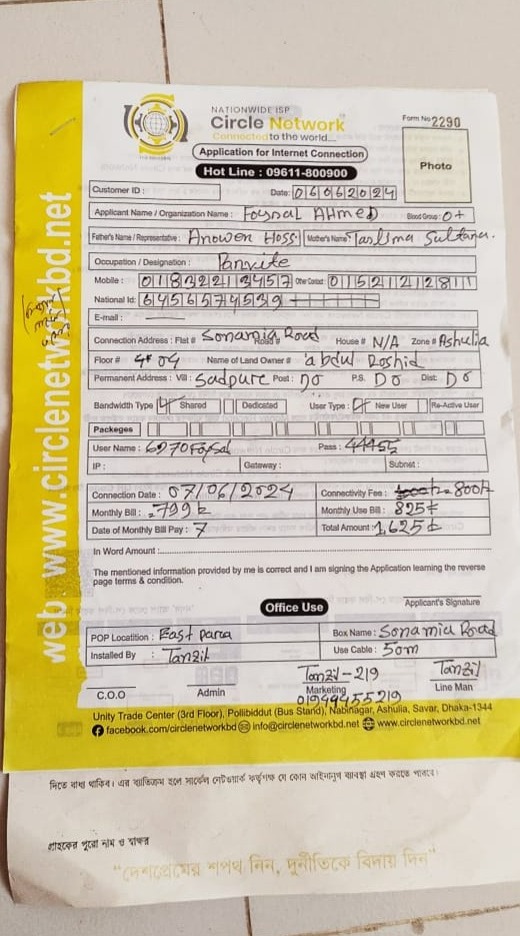 NATIONWIDE ISP
Circle Network
Connected to the world...
Form No 2290
Application for Internet Connection
Photo
Hot Line : 09611-800900
Customer ID : Date: 06062024
Applicant Name / Organization Name : Foysal AHmed Blood Group: O+
Father's Name / Representative : Anower Hoss. Mother's Name Taslima Sultana.
Occupation / Designation :
Mobile : 01832213457 Other Contact: 01521212811
National Id: 6456574539
E-mail :
Connection Address : Flat # Sonamia Road Road# House # N/A Zone # Ashulia
Floor # 4* 04 Name of Land Owner # abdul Roshid
Permanent Address : Vill : Sadpure Post : Do P.S. Do Dist: Do
Bandwidth Type Shared Dedicated User Type : New User Re-Active User
Packeges
User Name : 6270Foysal Pass : 44455
IP : Gateway : Subnet :
Connection Date : 07/06/2024 Connectivity Fee : 800/-
Monthly Bill : 799 ৳ Monthly Use Bill : 825৳
Date of Monthly Bill Pay : 7 Total Amount : 1,625 ৳
In Word Amount :
The mentioned information provided by me is correct and I am signing the Application learning the reverse
page terms & condition.
Office Use
Applicant's Signature
POP Locatition : East para Box Name : Sonamia Road
Installed By : Tanzil Use Cable : 50m
Tanzil-219 Tanzil
C.O.O Admin Marketing Line Man
01949455219
Unity Trade Center (3rd Floor), Pollibiddut (Bus Stand), Nabinagar, Ashulia, Savar, Dhaka-1344
facebook.com/circlenetworkbd info@circlenetworkbd.net www.circlenetworkbd.net
web: www.circlenetworkbd.net
দিতে বাধ্য থাকিব। এর ব্যতিক্রম হলে সার্কেল নেটওয়ার্ক কর্তৃপক্ষ যে কোন আইনানুগ ব্যবস্থা গ্রহণ করতে পারবে।
গ্রাহকের পুরো নাম ও স্বাক্ষর
"দেশপ্রেমের শপথ নিন, দুর্নীতিকে বিদায় দিন"